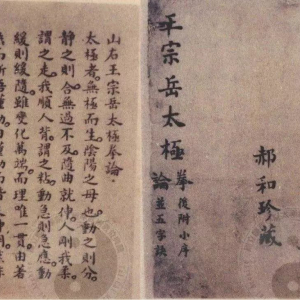 郝和珍藏
王宗岳太極拳論
後附小序
並五字訣
山右王宗岳太極拳論
太極者無極而生陰陽之母也動之則分
靜之則合無過不及隨曲就伸人剛我柔
謂之走我順人背謂之粘動急則急應動
緩則緩隨雖變化萬端而理唯一貫由著